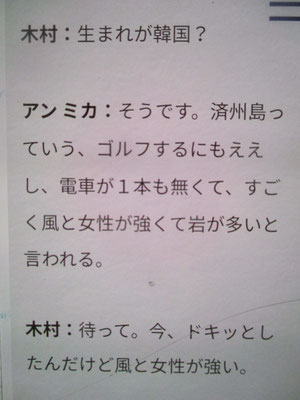 木村：生まれが韓国？
アン ミカ：そうです。済州島っ
ていう、ゴルフするにもええ
し、電車が１本も無くて、すご
く風と女性が強くて岩が多いと
言われる。
木村：待って。今、ドキッとし
たんだけど風と女性が強い。